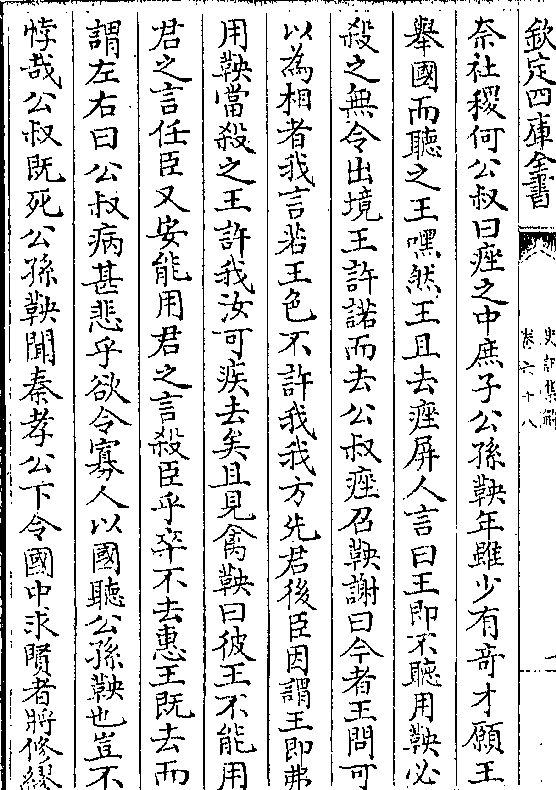 欽定四庫全書
史記集解
卷六十八
奈社稷何公叔曰痤之中庶子公孫鞅年雖少有竒才願王
舉國而聽之王嘿然王且去痤屏人言曰王即不聽用鞅必
殺之無令出境王許諾而去公叔痤召鞅謝曰今者王問可
以為相者我言若王色不許我我方先君後臣因謂王即弗
用鞅當殺之王許我汝可疾去矣且見禽鞅曰彼王不能用
君之言任臣又安能用君之言殺臣乎卒不去惠王既去而
謂左右曰公叔病甚悲乎欲令寡人以國聽公孫鞅也豈不
悖哉公叔既死公孫鞅聞秦孝公下令國中求賢者將修繆